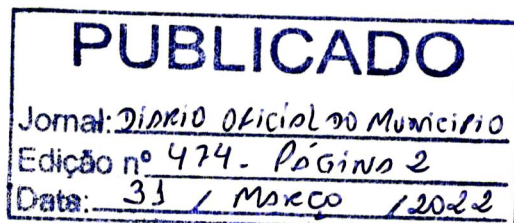 PUBLICADO
Jornal: DIÁRIO OFICIAL DO MUNICIPIO
Edição nº 474 - PÁGINA 2
Data: 31 / MARÇO / 2022